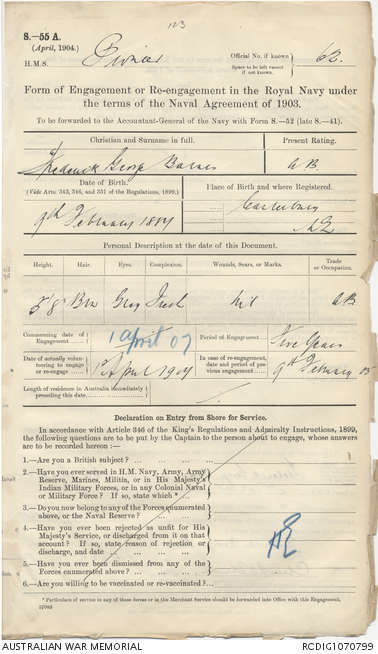 123
S.—55 A.
(April, 1904.)
H.M.S. Pioneer
Official No. if known 62.
Space to be left vacant if not known.
Form of Engagement or Re-engagement in the Royal Navy under
the terms of the Naval Agreement of 1903.
To be forwarded to the Accountant-General of the Navy with Form S.—52 (late S.—41).
Christian and Surname in full. Present Rating.
Frederick George Barnes A.B.
Date of Birth. Place of Birth and where Registered.
(Vide Arts. 343, 346, and 351 of the Regulations, 1899.)
9th February 1884 Canterbury
N.Z.
Personal Description at the date of this Document.
Height. Hair. Eyes. Complexion. Wounds, Scars, or Marks. Trade or Occupation.
5' 8" Brn Grey Fresh Nil AB
Commencing date of Engagement 1 April 07 Period of Engagement Five Years
Date of actually volunteering to engage or re-engage 1st April 1907 In case of re-engagement, date and period of previous engagement 9th February 05
Length of residence in Australia immediately preceding this date
Declaration on Entry from Shore for Service.
In accordance with Article 346 of the King's Regulations and Admiralty Instructions, 1899,
the following questions are to be put by the Captain to the person about to engage, whose answers
are to be recorded hereon:—
1.—Are you a British subject?
2.—Have you ever served in H.M. Navy, Army, Army
Reserve, Marines, Militia, or in His Majesty's
Indian Military Forces, or in any Colonial Naval
or Military Force? If so, state which *
3.—Do you now belong to any of the Forces enumerated
above, or the Naval Reserve?
4.—Have you ever been rejected as unfit for His
Majesty's Service, or discharged from it on that
account? If so, state reason of rejection or
discharge, and date
5.—Have you ever been dismissed from any of the
Forces enumerated above?
6.—Are you willing to be vaccinated or re-vaccinated?
* Particulars of service in any of these forces or in the Merchant Service should be forwarded into Office with this Engagement.
AUSTRALIAN WAR MEMORIAL RCDIG1070799